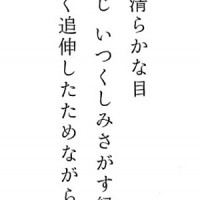 清らかな目
じ いつくしみさがす
く追伸したためながら